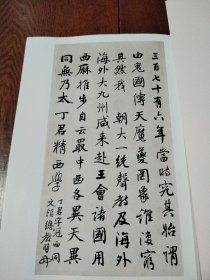 三百七十有六年當時究其始謂
由鬼國傳天魔夔罔象誰復窮
其然我 朝大一統聲教及海外
海外大九州咸来赴王會諸國用
西厤推步自云眾中西各異天異
同無乃太 丁君精西學
丁君字冠西同
文館總教習也